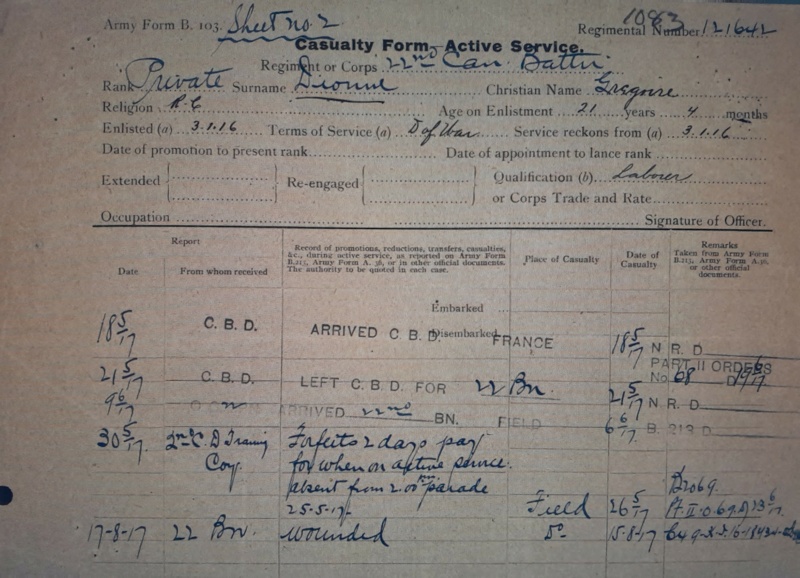 Army Form B. 103. Sheet no. 2
1083
Regimental Number 121642
Casualty Form—Active Service.
Regiment or Corps 22nd Can. Battn
Rank Private Surname Dionne Christian Name Gregoire
Religion R.C Age on Enlistment 21 years 4 months
Enlisted (a) 3.1.16 Terms of Service (a) D of War Service reckons from (a) 3.1.16
Date of promotion to present rank Date of appointment to lance rank
Extended Re-engaged Qualification (b) Laborer
or Corps Trade and Rate
Occupation Signature of Officer.
Report
Date From whom received
Record of promotions, reductions, transfers, casualties, &c., during active service, as reported on Army Form B.213, Army Form A. 36, or in other official documents. The authority to be quoted in each case.
Place of Casualty
Date of Casualty
Remarks
Taken from Army Form B.213, Army Form A.36, or other official documents.
Embarked
Disembarked
18 5/17 C. B. D. ARRIVED C. B. D. FRANCE 18 5/17 N. R. D
PART II ORDERS
No. 68 D
21 5/17 C. B. D. LEFT C. B. D. FOR 22 Bn. 21 5/17 N. R. D
9 6/17 ARRIVED 22nd BN. FIELD 6 6/17 B. 213 D
30 5/17 2nd C. D Traing Coy. Forfeits 2 days pay
for when on active service
absent from 2.00 pm parade
25-5-17. Field 26 5/17 Pt II. O 69 D/13 6/17
17-8-17 22 Bn. wounded Do 15-8-17